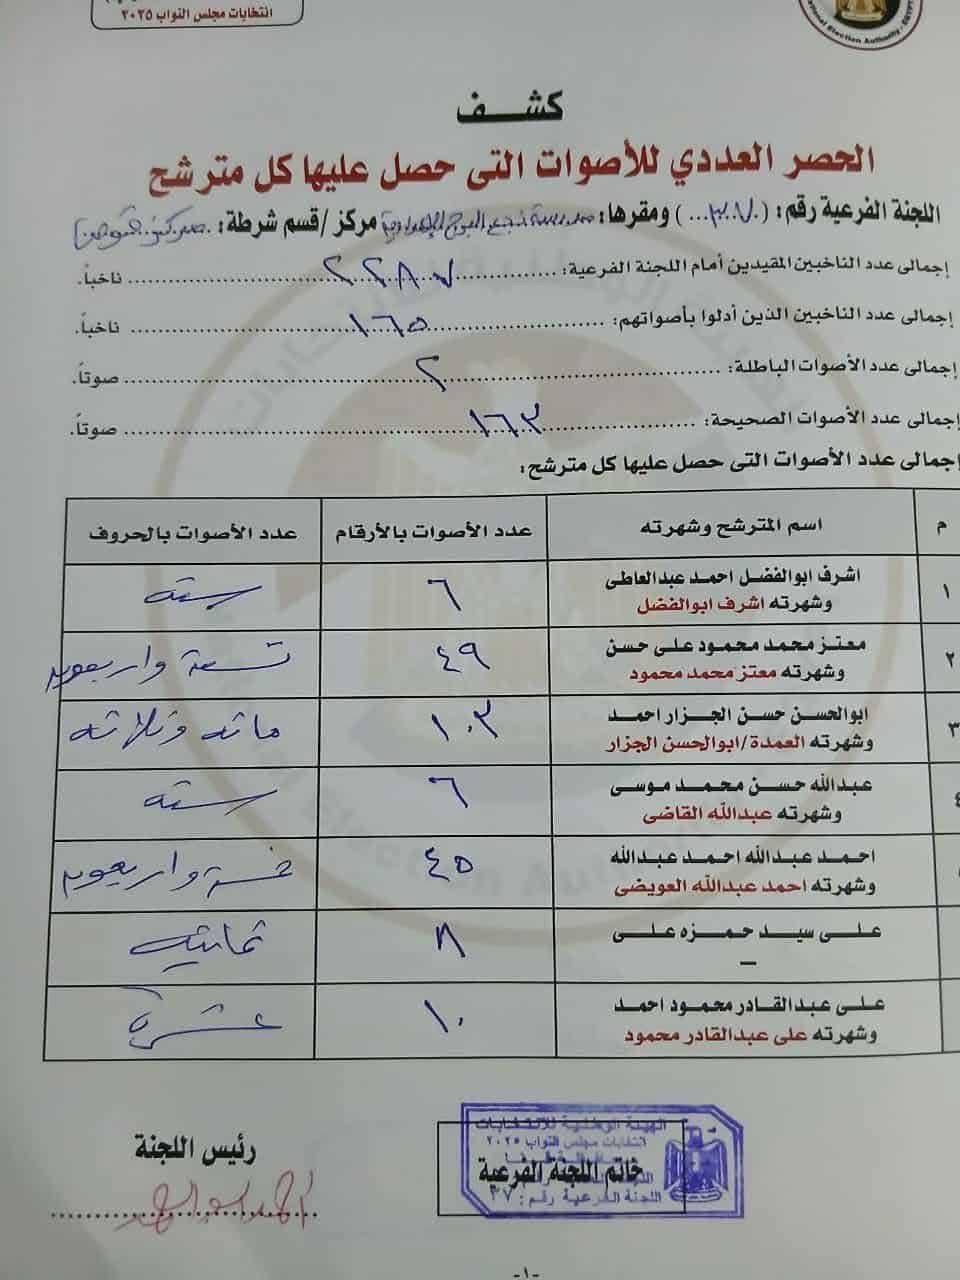 انتخابات مجلس النواب ٢٠٢٥
National Election Authority - EGYPT
كشف
الحصر العددي للأصوات التى حصل عليها كل مترشح
اللجنة الفرعية رقم: (٣٧...) ومقرها: مدرسة نجع البرج الإعدادية مركز /قسم شرطة: مركز
إجمالى عدد الناخبين المقيدين أمام اللجنة الفرعية: ٢٢٨٧ ناخباً.
إجمالى عدد الناخبين الذين أدلوا بأصواتهم: ١٦٥ ناخباً.
إجمالى عدد الأصوات الباطلة: ٢ صوتاً.
إجمالى عدد الأصوات الصحيحة: ١٦٣ صوتاً.
إجمالى عدد الأصوات التى حصل عليها كل مترشح:
م اسم المترشح وشهرته عدد الأصوات بالأرقام عدد الأصوات بالحروف
١ اشرف ابوالفضل احمد عبدالعاطى ٦ سته
وشهرته اشرف ابوالفضل
٢ معتز محمد محمود على حسن ٤٩ تسعة واربعون
وشهرته معتز محمد محمود
٣ ابوالحسن حسن الجزار احمد ١٠٣ مائه وثلاثه
وشهرته العمدة/ابوالحسن الجزار
٤ عبدالله حسن محمد موسى ٦ سته
وشهرته عبدالله القاضى
احمد عبدالله احمد عبدالله ٤٥ خمسة واربعون
وشهرته احمد عبدالله العويضى
على سيد حمزه على ٨ ثمانيه
–
على عبدالقادر محمود احمد ١٠ عشرة
وشهرته على عبدالقادر محمود
رئيس اللجنة
خاتم اللجنة الفرعية
الهيئة الوطنية للانتخابات
انتخابات مجلس النواب ٢٠٢٥
اللجنة الفرعية رقم: ٣٧
-١-